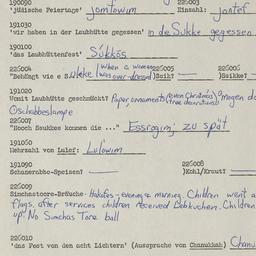 190090 225003
"jüdische Feiertage" jomtowim Einzahl: jontef
191030
"wir haben in der Laubhütte gegessen" in de Sukke gegessen
190100
"das Laubhüttenfest" Sukkōs
225004 225005 225006
"Behängt wie e S.ukeke (When a woman was over-dressed) Gsik? Gsikke?
191020
Womit Laubhütte geschmückt? Paper ornaments (even Christmas tree decorations) mogen d
Oschabbeslampe
225007
"Nooch Sukkes kommen die ..." Essrogim; zu spät
191050
Mehrzahl von Lulef: Lulowim
191090 225008
Schanerabbe-Speisen? /Kohl/Kraut?
225009
Simchastoore-Bräuche: Hakafes - evening & morning. Children went a
flags, after services children received Lebkuchen. Children
up. No Simchas Tora ball
225010
"das Fest von den acht Lichtern" (Aussprache von Chanukkah) Chanu